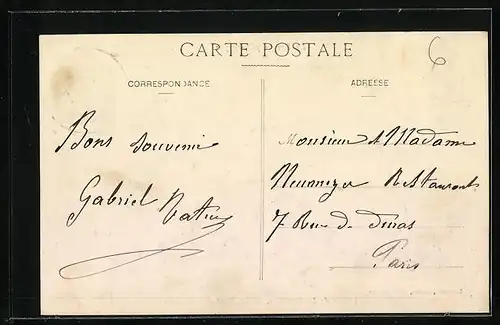 CARTE POSTALE
6
CORRESPONDANCE
ADRESSE
Bons souvenir
Gabriel
Monsieur & Madame
Restaurant
7 Rue de duras
Paris